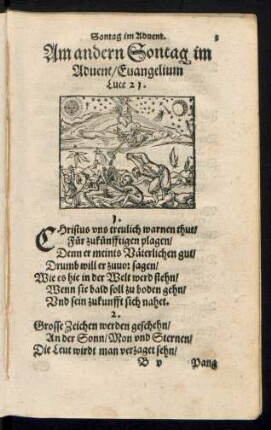 Sontag im Aduent.
Am andern Sontag im
Aduent/Euangelium
Luce 21.
1.
CHristus vns treulich warnen thut/
Für zukünfftigen plagen/
Denn er meints Väterlichen gut/
Drumb will er zuuor sagen/
Wie es hie in der Welt werd stehn/
Wenn sie bald soll zu boden gehn/
Vnd sein zukunfft sich nahet.
2.
Grosse Zeichen werden geschehn/
An der Sonn/Mon vnd Sternen/
Die Leut wirdt man verzaget sehn/
B v Pang